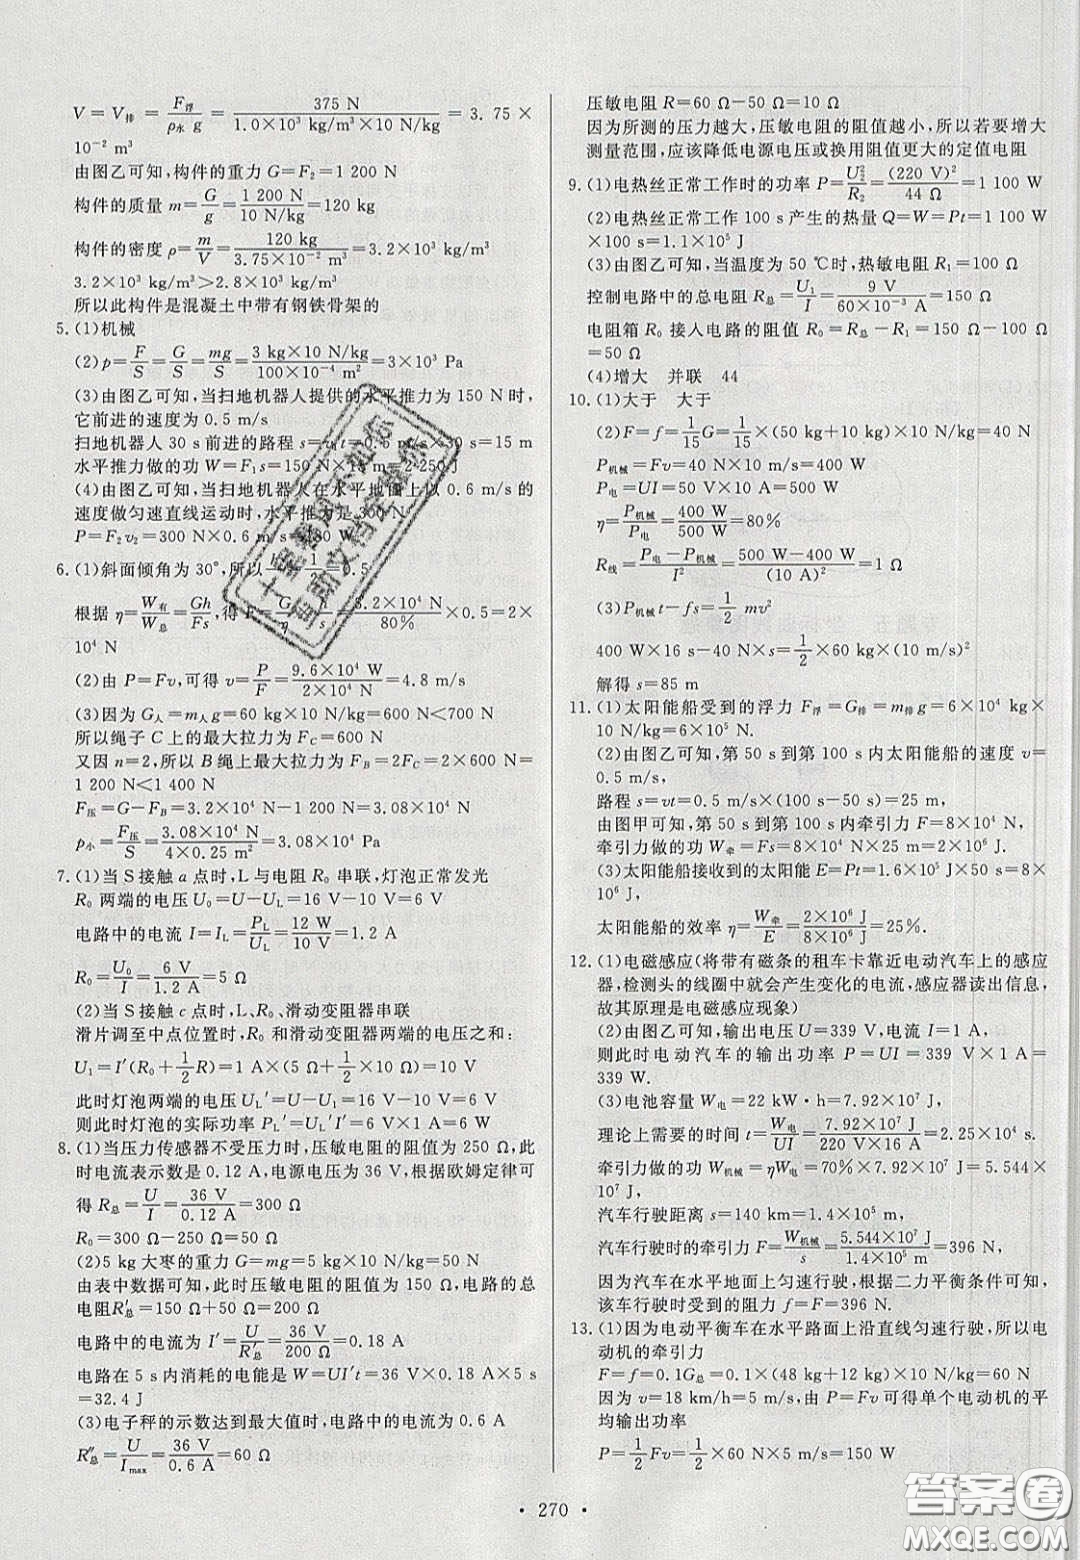 V＝V排＝F浮/ρ水 g＝375 N/1.0×10³ kg/m³×10 N/kg＝3.75×
10⁻² m³
由图乙可知，构件的重力 G＝F₂＝1 200 N
构件的质量 m＝G/g＝1 200 N/10 N/kg＝120 kg
构件的密度 ρ＝m/V＝120 kg/3.75×10⁻² m³＝3.2×10³ kg/m³
3.2×10³ kg/m³＞2.8×10³ kg/m³
所以此构件是混凝土中带有钢铁骨架的
5. (1)机械
(2)p＝F/S＝G/S＝mg/S＝3 kg×10 N/kg/100×10⁻⁴ m²＝3×10³ Pa
(3)由图乙可知，当扫地机器人提供的水平推力为 150 N 时，
它前进的速度为 0.5 m/s
扫地机器人 30 s 前进的路程 s＝v₁t＝0.5 m/s×30 s＝15 m
水平推力做的功 W＝F₁s＝150 N×15 m＝2 250 J
(4)由图乙可知，当扫地机器人在水平地面上以 0.6 m/s 的
速度做匀速直线运动时，水平推力是 300 N
P＝F₂v₂＝300 N×0.6 m/s＝180 W
6. (1)斜面倾角为 30°，所以h/s＝1/2＝0.5
根据 η＝W有/W总＝Gh/Fs，得 F＝G/η·h/s＝3.2×10⁴ N/80%×0.5＝2×
10⁴ N
(2)由 P＝Fv，可得 v＝P/F＝9.6×10⁴ W/2×10⁴ N＝4.8 m/s
(3)因为 G人＝m人g＝60 kg×10 N/kg＝600 N＜700 N
所以绳子 C 上的最大拉力为 F_C＝600 N
又因 n＝2，所以 B 绳上最大拉力为 F_B＝2F_C＝2×600 N＝
1 200 N＜1 400 N
F压＝G－F_B＝3.2×10⁴ N－1 200 N＝3.08×10⁴ N
p小＝F压/S＝3.08×10⁴ N/4×0.25 m²＝3.08×10⁴ Pa
7. (1)当 S 接触 a 点时，L 与电阻 R₀ 串联，灯泡正常发光
R₀ 两端的电压 U₀＝U－U_L＝16 V－10 V＝6 V
电路中的电流 I＝I_L＝P_L/U_L＝12 W/10 V＝1.2 A
R₀＝U₀/I＝6 V/1.2 A＝5 Ω
(2)当 S 接触 c 点时，L、R₀、滑动变阻器串联
滑片调至中点位置时，R₀ 和滑动变阻器两端的电压之和：
U₁＝I′(R₀＋1/2R)＝1 A×(5 Ω＋1/2×10 Ω)＝10 V
此时灯泡两端的电压 U_L′＝U－U₁＝16 V－10 V＝6 V
则此时灯泡的实际功率 P_L′＝U_L′I′＝6 V×1 A＝6 W
8. (1)当压力传感器不受压力时，压敏电阻的阻值为 250 Ω，此
时电流表示数是 0.12 A，电源电压为 36 V，根据欧姆定律可
得 R总＝U/I＝36 V/0.12 A＝300 Ω
R₀＝300 Ω－250 Ω＝50 Ω
(2)5 kg 大枣的重力 G＝mg＝5 kg×10 N/kg＝50 N
由表中数据可知，此时压敏电阻的阻值为 150 Ω，电路的总
电阻R′总＝150 Ω＋50 Ω＝200 Ω
电路中的电流为 I′＝U/R′总＝36 V/200 Ω＝0.18 A
电路在 5 s 内消耗的电能是 W＝UI′t＝36 V×0.18 A×5 s
＝32.4 J
(3)电子秤的示数达到最大值时，电路中的电流为 0.6 A
R″总＝U/Imax＝36 V/0.6 A＝60 Ω
压敏电阻 R＝60 Ω－50 Ω＝10 Ω
因为所测的压力越大，压敏电阻的阻值越小，所以若要增大
测量范围，应该降低电源电压或换用阻值更大的定值电阻
9. (1)电热丝正常工作时的功率 P＝U₂²/R₂＝(220 V)²/44 Ω＝1 100 W
(2)电热丝正常工作 100 s 产生的热量 Q＝W＝Pt＝1 100 W
×100 s＝1.1×10⁵ J
(3)由图乙可知，当温度为 50 ℃时，热敏电阻 R₁＝100 Ω
控制电路中的总电阻 R总＝U₁/I＝9 V/60×10⁻³ A＝150 Ω
电阻箱 R₀ 接入电路的阻值 R₀＝R总－R₁＝150 Ω－100 Ω
＝50 Ω
(4)增大 并联 44
10. (1)大于 大于
(2)F＝f＝1/15G＝1/15×(50 kg＋10 kg)×10 N/kg＝40 N
P机械＝Fv＝40 N×10 m/s＝400 W
P电＝UI＝50 V×10 A＝500 W
η＝P机械/P电＝400 W/500 W＝80%
R线＝P电－P机械/I²＝500 W－400 W/(10 A)²＝1 Ω
(3)P机械t－fs＝1/2 mv²
400 W×16 s－40 N×s＝1/2×60 kg×(10 m/s)²
解得 s＝85 m
11. (1)太阳能船受到的浮力 F浮＝G排＝m排g＝6×10⁴ kg×
10 N/kg＝6×10⁵ N.
(2)由图乙可知，第 50 s 到第 100 s 内太阳能船的速度 v＝
0.5 m/s，
路程 s＝vt＝0.5 m/s×(100 s－50 s)＝25 m，
由图甲可知，第 50 s 到第 100 s 内牵引力 F＝8×10⁴ N，
牵引力做的功 W牵＝Fs＝8×10⁴ N×25 m＝2×10⁶ J.
(3)太阳能船接收到的太阳能 E＝Pt＝1.6×10⁵ J/s×50 s＝8
×10⁶ J，
太阳能船的效率 η＝W牵/E＝2×10⁶ J/8×10⁶ J＝25%.
12. (1)电磁感应(将带有磁条的租车卡靠近电动汽车上的感应
器，检测头的线圈中就会产生变化的电流，感应器读出信息，
故其原理是电磁感应现象)
(2)由图乙可知，输出电压 U＝339 V，电流 I＝1 A，
则此时电动汽车的输出功率 P＝UI＝339 V×1 A＝
339 W.
(3)电池容量 W电＝22 kW·h＝7.92×10⁷ J，
理论上需要的时间 t＝W电/UI＝7.92×10⁷ J/220 V×16 A＝2.25×10⁴ s.
牵引力做的功 W机械＝ηW电＝70%×7.92×10⁷ J＝5.544×
10⁷ J，
汽车行驶距离 s＝140 km＝1.4×10⁵ m，
汽车行驶时的牵引力 F＝W机械/s＝5.544×10⁷ J/1.4×10⁵ m＝396 N，
因为汽车在水平地面上匀速行驶，根据二力平衡条件可知，
该车行驶时受到的阻力 f＝F＝396 N.
13. (1)因为电动平衡车在水平路面上沿直线匀速行驶，所以电
动机的牵引力
F＝f＝0.1G总＝0.1×(48 kg＋12 kg)×10 N/kg＝60 N
因为 v＝18 km/h＝5 m/s，由 P＝Fv 可得单个电动机的平
均输出功率
P＝1/2Fv＝1/2×60 N×5 m/s＝150 W
· 270 ·
答案圈
MXQE.COM